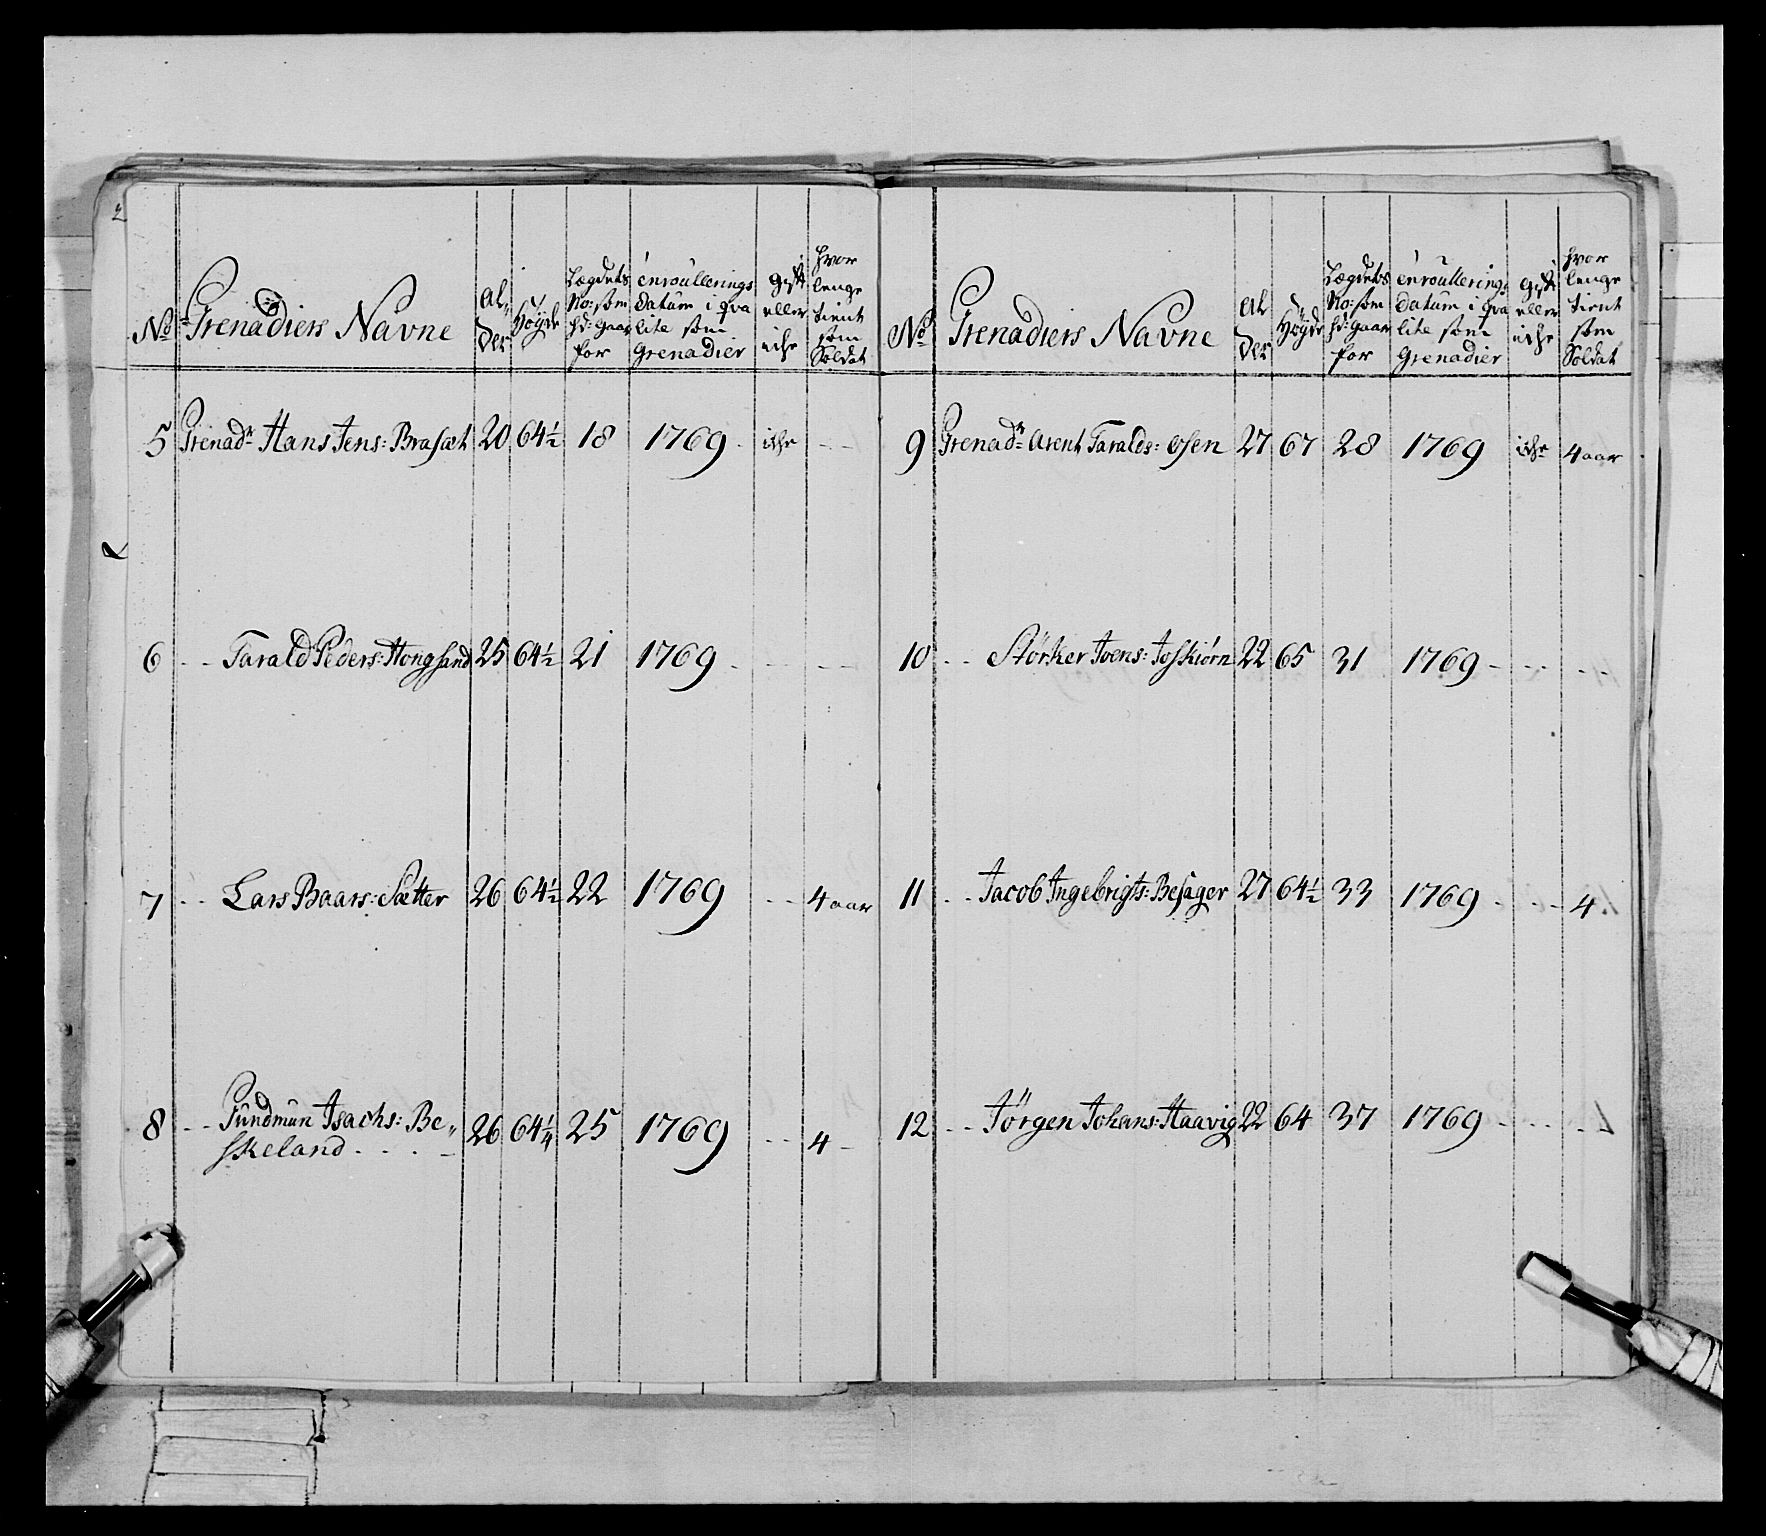 2
No Grenadiers Navne Al,, der Höyde Lægdets No: som hd: gaar for enroullerings datum i qvalite som Grenadier gift eller iche hvor lenge tient som Soldat
5 Grenadr Hans Jens: Brasæt 20 64½ 18 1769 . iche - -
6 - - Tarald Peders: Hongsand 25 64½ 21 1769 - - - - -
7 - - Lars Baars: Sætter 26 64½ 22 1769 - - 4 aar
8 - - Gundmun Isachs: Be,,
skeland . . . - 26 64¼ 25 1769 - - 4 -
No Grenadiers Navne Al der Höyde Lægdets No: som hd: gaar for enroullerings datum i qvalite som Grenadier gift eller iche hvor lenge tient som Soldat
9 Grenadr Arent Taralds: Osen 27 67 28 1769 iche 4 aar
10 - - Störker Joens: Joskiörn 22 65 31 1769 - - - - -
11 - - Jacob Ingebrigts: Besager 27 64½ 33 1769 - - - 4
12 - - Jörgen Johans: Haavig 22 64 37 1769 - - - - -